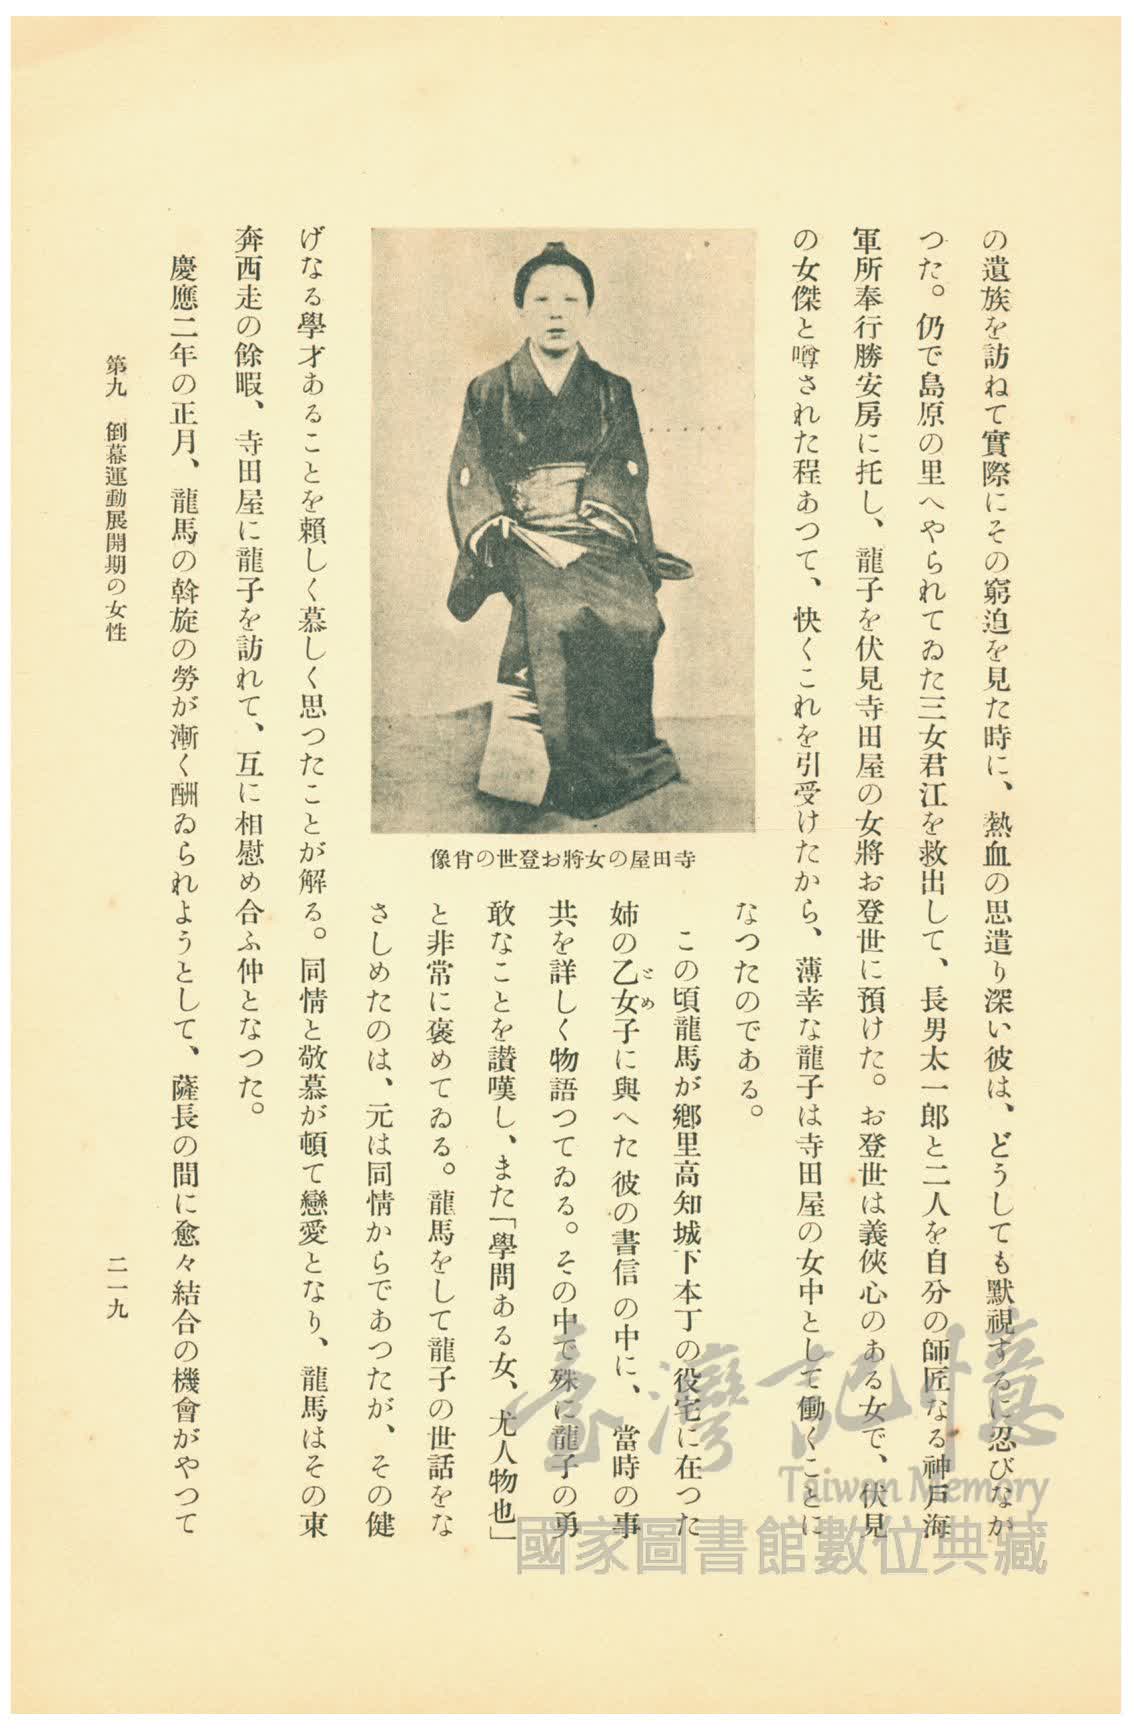 の遺族を訪ねて實際にその窮迫を見た時に、熱血の思遣り深い彼は、どうしても默視するに忍びなか
つた。仍で島原の里へやられてゐた三女君江を救出して、長男太一郎と二人を自分の師匠なる神戸海
軍所奉行勝安房に托し、龍子を伏見寺田屋の女將お登世に預けた。お登世は義俠心のある女で、伏見
の女傑と噂された程あつて、快くこれを引受けたから、薄幸な龍子は寺田屋の女中として働くことに
なつたのである。
この頃龍馬が鄕里高知城下本丁の役宅に在つた
姉の乙女子に與へた彼の書信の中に、當時の事
ごめ
共を詳しく物語つてゐる。その中で殊に龍子の勇
敢なことを讃嘆し、また「學問ある女、尤人物也」
と非常に褒めてゐる。龍馬をして龍子の世話をな
さしめたのは、元は同情からであつたが、その健
寺田屋の女將お登世の肖像
げなる學才あることを賴しく慕しく思つたことが解る。同情と敬慕が頓て戀愛となり、龍馬はその東
奔西走の餘暇、寺田屋に龍子を訪れて、互に相慰め合ふ仲となつた。
慶應二年の正月、龍馬の斡旋の勞が漸く酬ゐられようとして、薩長の間に愈々結合の機會がやつて
第九 倒幕運動展開期の女性
二一九
臺灣記憶
Taiwan Memory
國家圖書館數位典藏